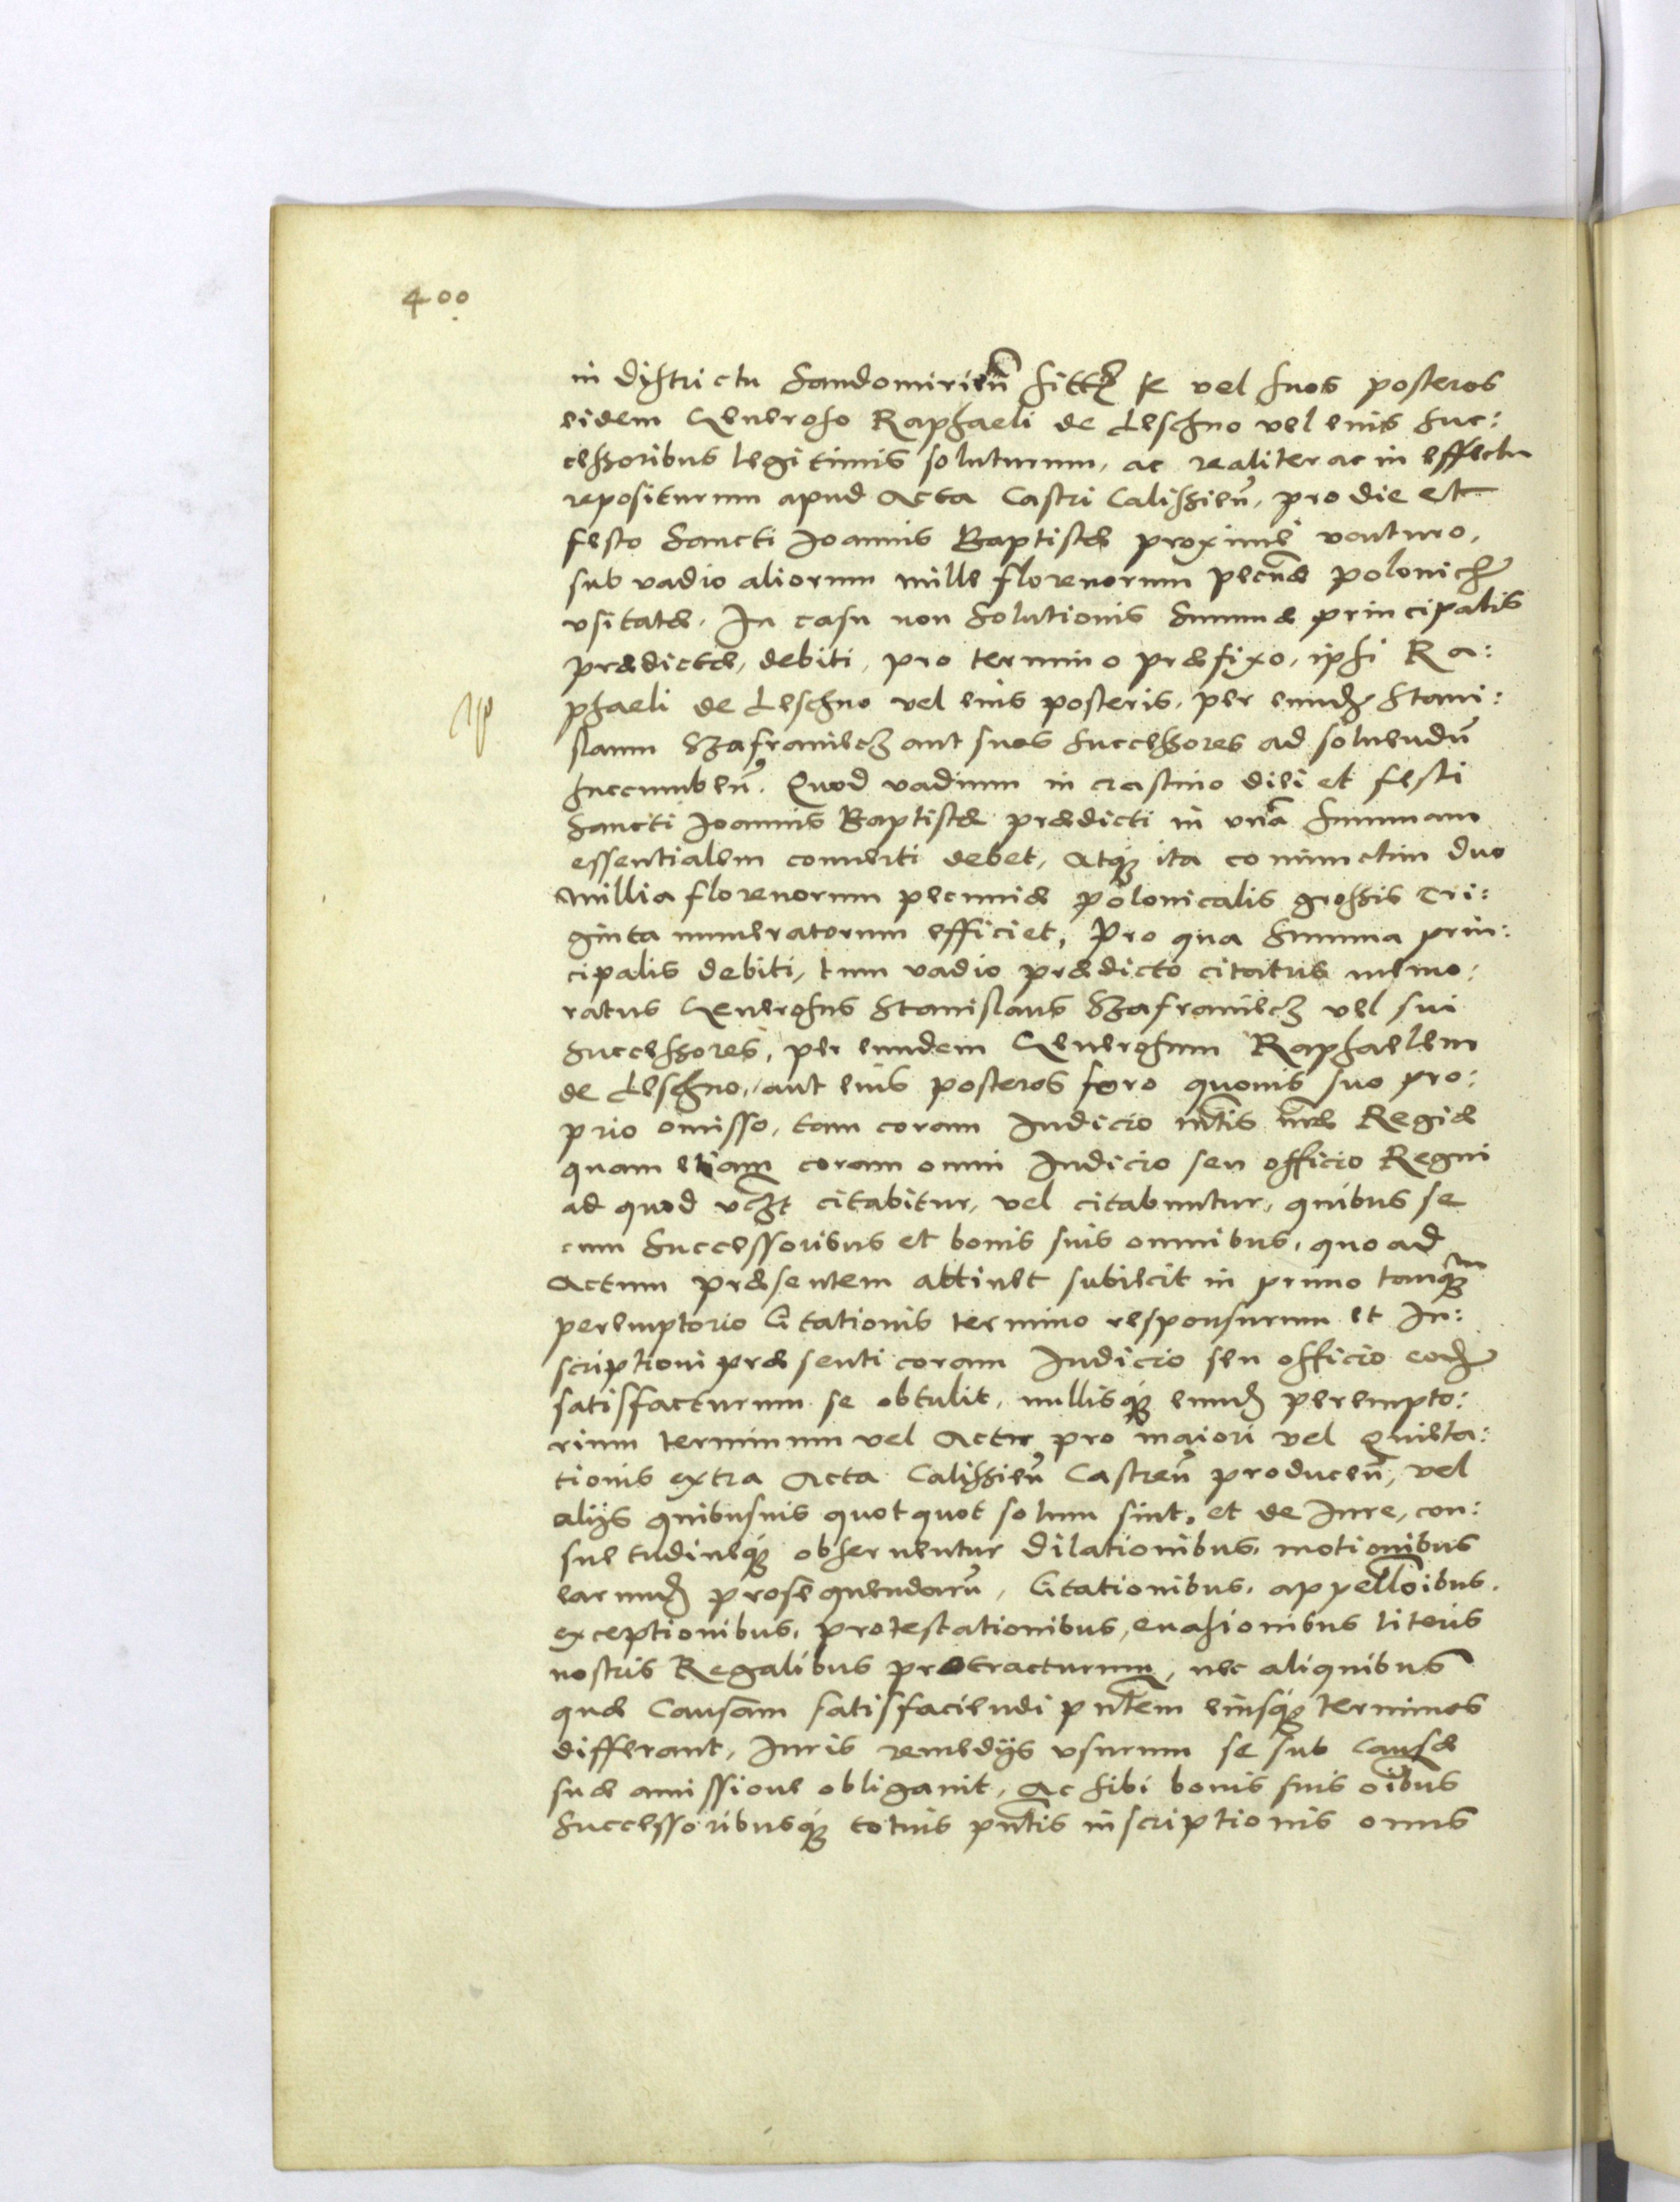 400
in districtu Sandomirien̄ sitt se vel suos posteros
eidem Generoso Raphaeli de Leschno vel eius Suc:
cessoribus legitimis soluturum, ac realiter ac in effectu
repositurum apud Acta Castri Calissien̄, pro die et
festo Sancti Joannis Baptistæ proxime venturo,
sub vadio aliorum mille florenorum pecūæ polonich
vsitatæ. In casu non Solutionis Summæ principalis
prædictæ, debiti, pro termino præfixo, ipsi Ra:
phaeli de Leschno vel eius posteris, per eund Stani:
slaum Szafraniecz aut suos Successores ad soluendū
succumben̄. Quod vadium in crastino diei et festi
Sancti Joannis Baptistæ prædicti in vnā Summam
essentialem conuerti debet, Atq ita coniunctim duo
Millia florenorum pecuniæ polonicalis grossis Tri:
ginta numeratorum efficiet, Pro qua Summa prin:
cipalis debiti, tum vadio prædicto citatus memo:
ratus Generosus Stanislaus Szafraniecz vel sui
Successores, per eundem Generosum Raphaelem
de Leschno, aut eius posteros foro quouis suo pro:
prio omisso, tam coram Iudicio mt̄is nr̄æ Regiæ
quam etiam coram omni Iudicio seu officio Regni
ad quod vczt citabitur, vel citabuntur, quibus se
cum Successoribus et bonis suis omnibus, quo ad
Actum præsentem attinet subiecit in primo tanq̄m
peremptorio Citationis termino responsurum et In:
scriptioni præsenti coram Iudicio seu officio eod
satisfacturum se obtulit, nullisq eund perempto:
rium terminum vel Actu pro maiori vel Quieta:
tionis extra Acta Calissien̄ Castren̄ producen̄, vel
alijs quibusuis quotquot solum sint, et de Iure, con:
suetudineq obseruentur dilationibus, motionibus
earund prosequendarū, Citationibus, appellōibus,
exceptionibus, protestationibus, euasionibus literis
nostris Regalibus protracturum, nec aliquibus
quæ Causam satisfaciendi pn̄tem eiusq terminos
differant, Iuris remedijs vsurum se sub Causæ
suæ amissione obligauit, Ac sibi bonis suis oībus
Successoribusq totius pn̄tis inscriptionis onus